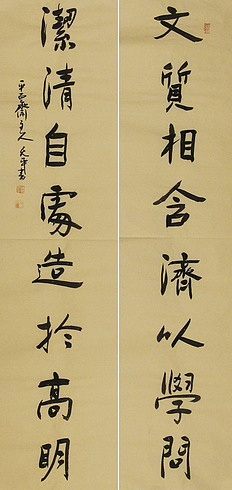 文質相含濟以學問
潔清自處造於高明
齋主人